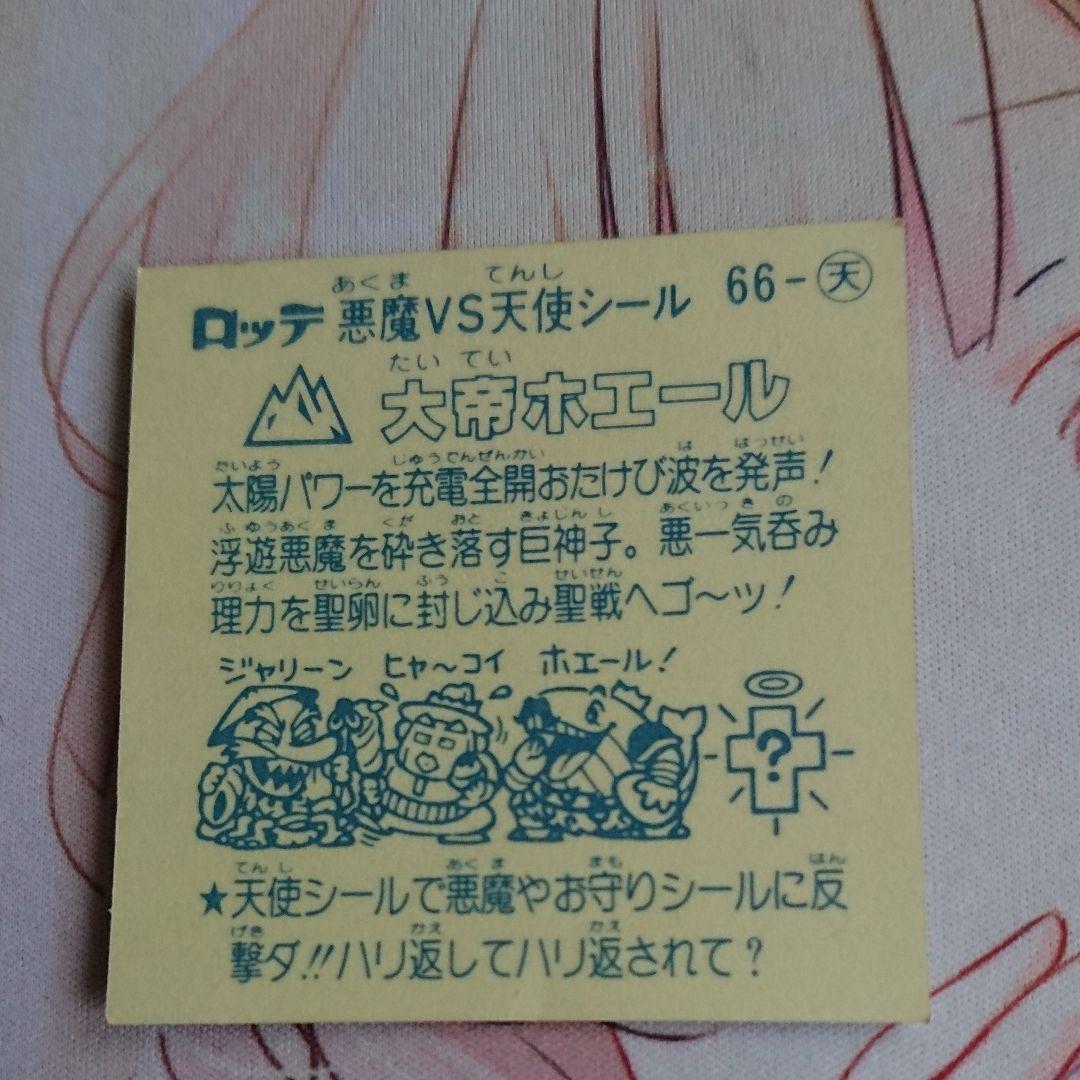 あくま てんし
ロッテ 悪魔VS天使シール 66-天
たい てい
大帝ホエール
たいよう じゅうでんぜんかい は はっせい
太陽パワーを充電全開おたけび波を発声!
ふゆうあくま くだ おと きょじんし あくいっきの
浮遊悪魔を砕き落す巨神子。悪一気呑み
りりょく せいらん ふう こ せいせん
理力を聖卵に封じ込み聖戦へゴ〜ッ!
ジャリーン ヒャ〜コイ ホエール!
?
てんし あくま まも はん
★天使シールで悪魔やお守りシールに反
げき かえ かえ
撃ダ!!ハリ返してハリ返されて?